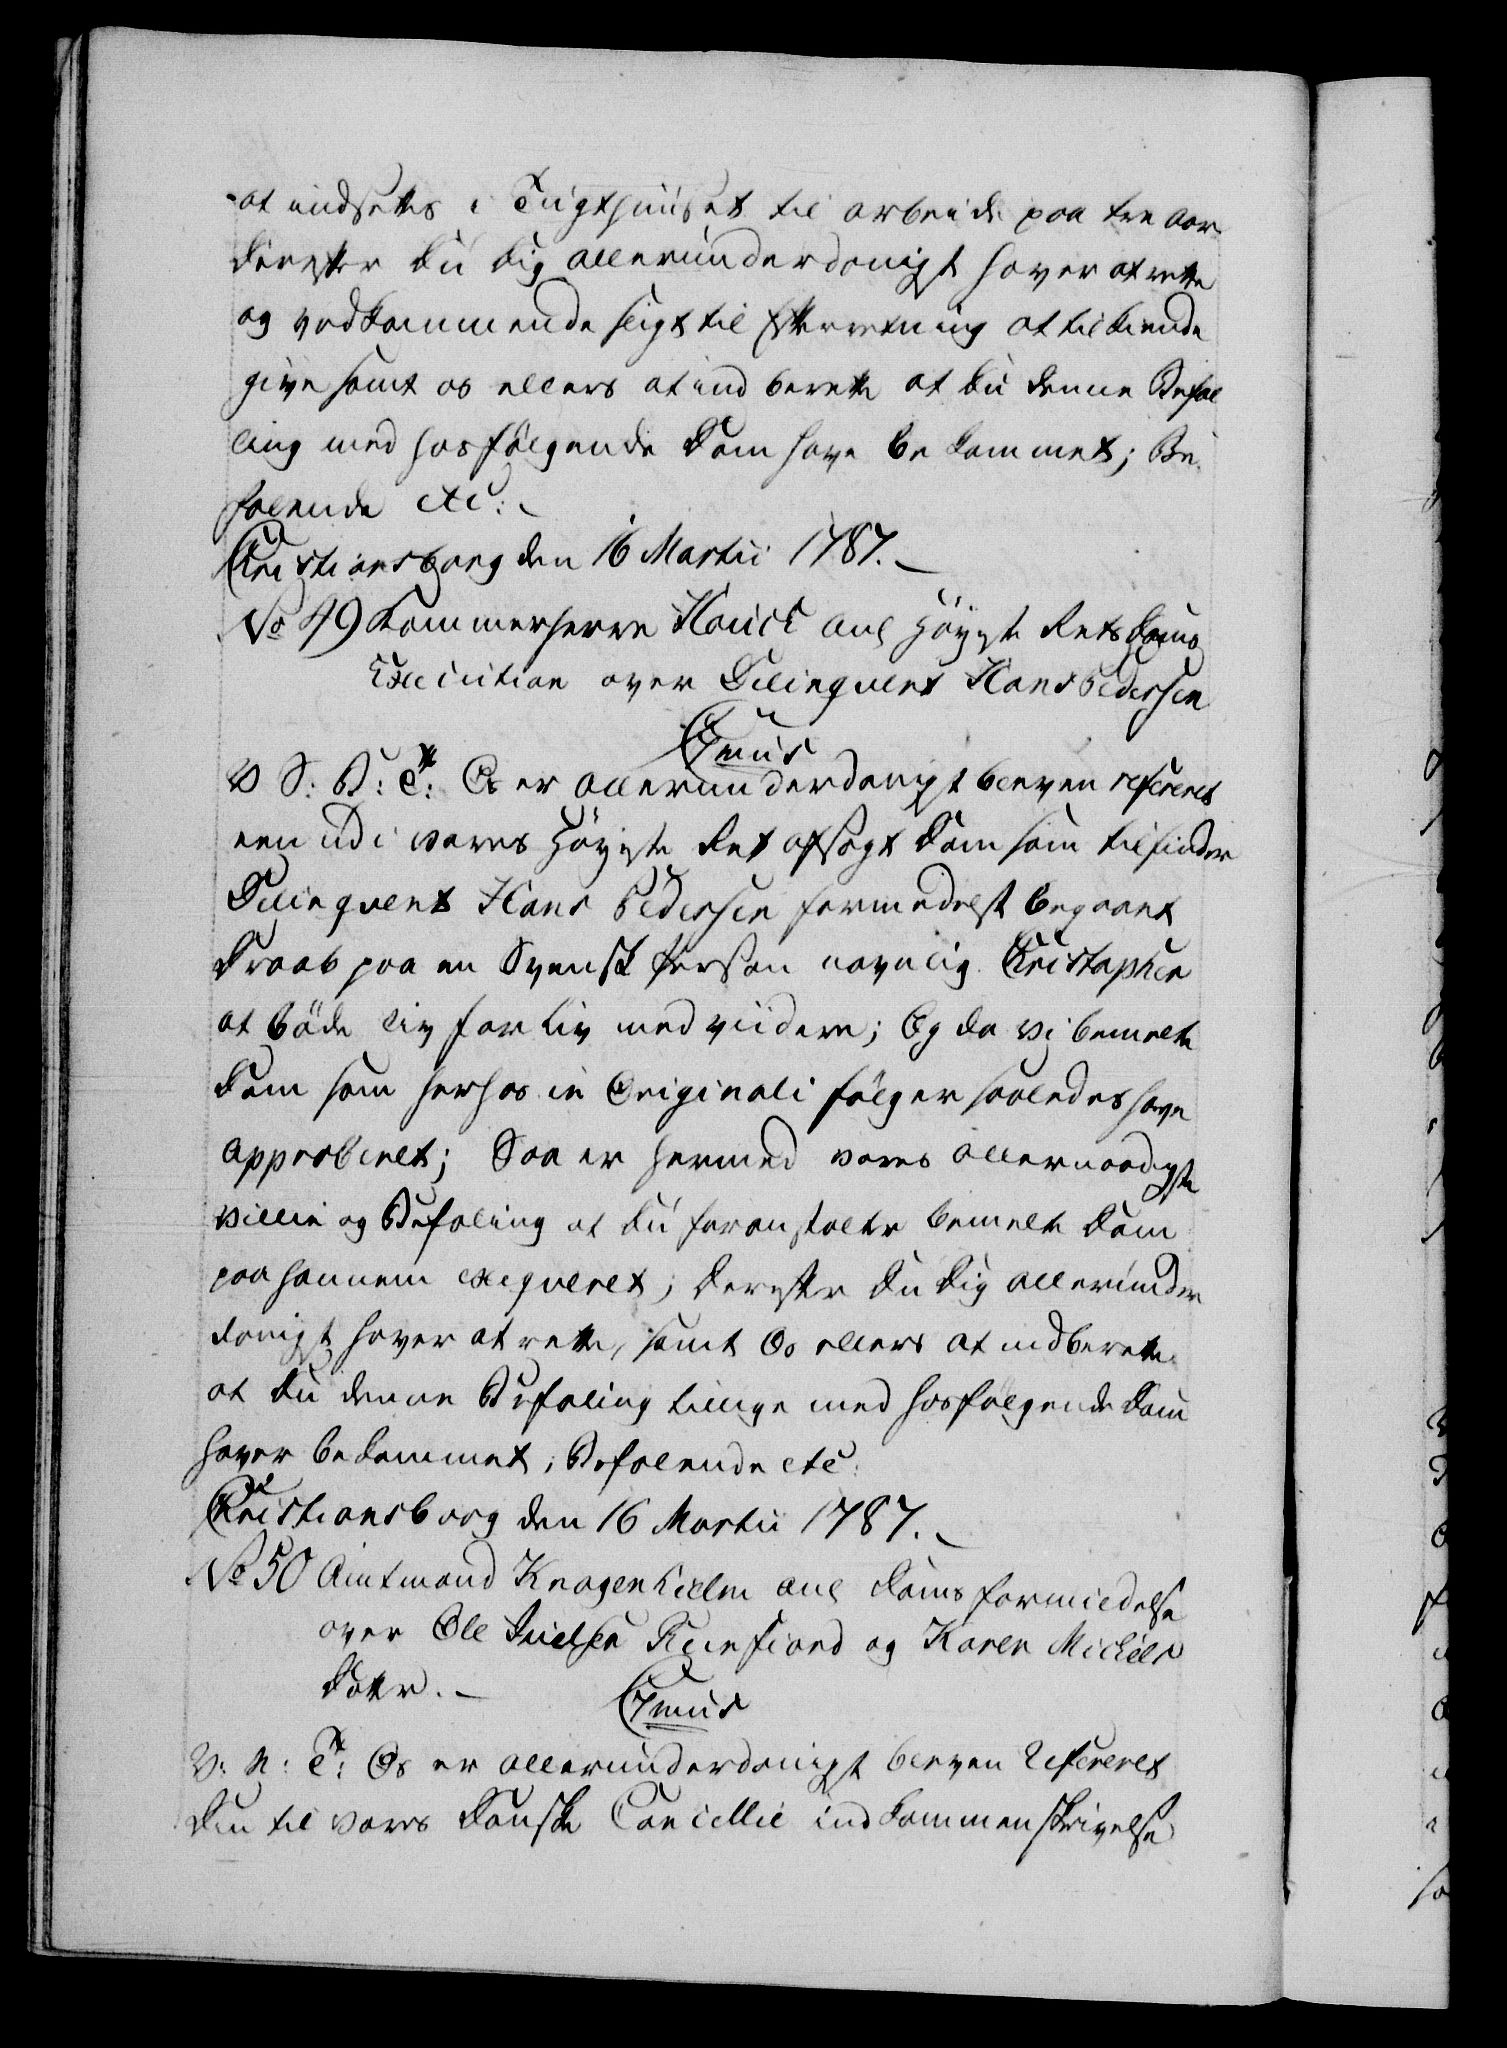 at indsættes i Tugthuuset til arbeide paa tre Aar
derefter du dig allerunderdanigst haver at rette
og vedkommende sligt til Efterretning at tilkiende
give samt os ellers at indberette at du denne Befal
ling med hosfölgende Dom have bekommet; Be-
falende etc:
Christiansborg den 16 Martii 1787.
No 49 Kammerherre Hauch anl Höyeste Rets Doms
Execution over Delinqvent Hans Pedersen
C7mus
V S: B: T: Os er allerunderdanigst bleven refereret
een udi vores Höyeste Ret afsagt Dom som tilfinder
Delinqvent Hans Pedersen formedelst begaaet
Drab paa en Svensk Person navnlig Christopher
at böde Liv for Liv med viidere; Og da vi bemelte
Dom som herhos in Originali fölger saaledes have
approberet; Saa er hermed vores allernaadigste
Villie og Befaling at du foranstalter bemelte Dom
paa hannem exeqveret; derefter du dig allerunder
danigst haver at rette, samt Os ellers at indberette
at du denne Befaling tillige med hosfölgende Dom
haver bekommet; Befalende etc:
Christiansborg den 16 Martii 1787.
No 50 Amtmand Kragenhielm anl Doms formildelse
over Ole Nielsen Reinfiord og Karen Michels
Datter.
C7mus
V: N: T: Os er allerunderdanigst bleven Refereret
Din til vores Danske Cancellie indkommen skrivelse